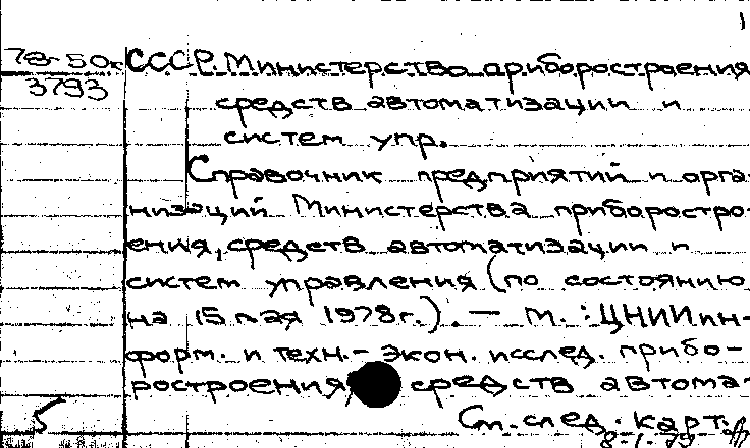 1
78-50к
3793
СССР. Министерство приборостроения
средств автоматизации и
систем упр.
Справочник предприятий и орга-
низаций Министерства приборостро-
ения, средств автоматизации и
систем управления (по состоянию
на 15 мая 1978г.). — М. : ЦНИИин-
форм. и техн.- экон. исслед. прибо-
ростроения, средств автома-
См. след. карт.